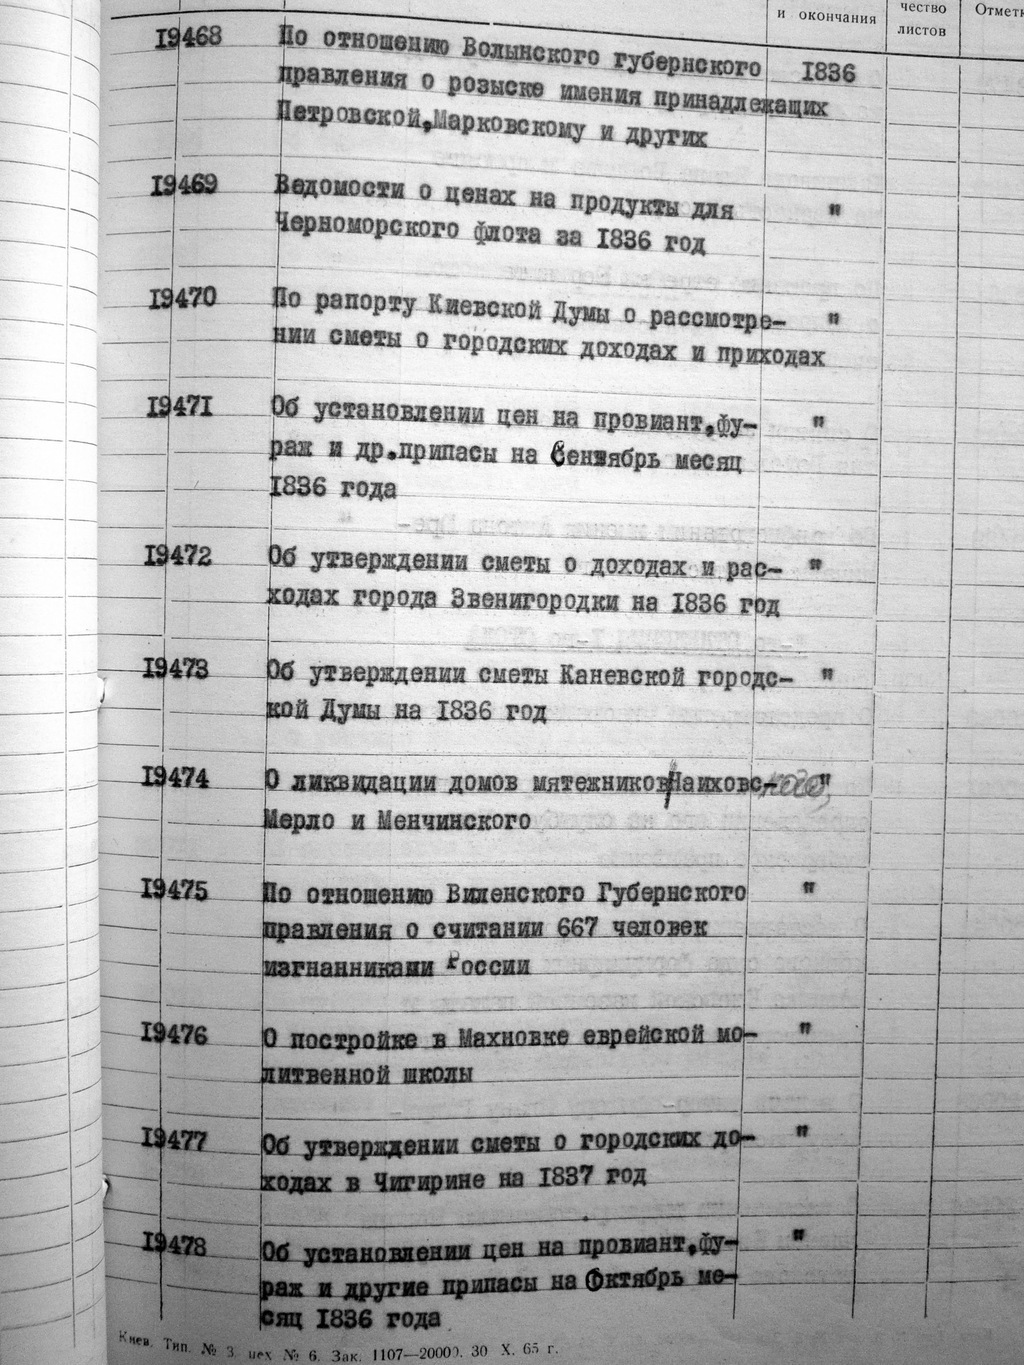 и окончания
чество
листов
Отметк
19468 По отношению Волынского губернского 1836
правления о розыске имения принадлежащих
Петровской,Марковскому и других
19469 Ведомости о ценах на продукты для "
Черноморского флота за 1836 год
19470 По рапорту Киевской Думы о рассмотре- "
нии сметы о городских доходах и приходах
19471 Об установлении цен на провиант,фу- "
раж и др.припасы на Сентябрь месяц
1836 года
19472 Об утверждении сметы о доходах и рас- "
ходах города Звенигородки на 1836 год
19473 Об утверждении сметы Каневской городс- "
кой Думы на 1836 год
19474 О ликвидации домов мятежников Наиховс-кого, "
Мерло и Менчинского
19475 По отношению Виленского Губернского "
правления о считании 667 человек
изгнанниками России
19476 О постройке в Махновке еврейской мо- "
литвенной школы
19477 Об утверждении сметы о городских до- "
ходах в Чигирине на 1837 год
19478 Об установлении цен на провиант,фу- "
раж и другие припасы на Октябрь ме-
сяц 1836 года
Киев. Тип. № 3, цех № 6. Зак. 1107—20000. 30 X. 65 г.